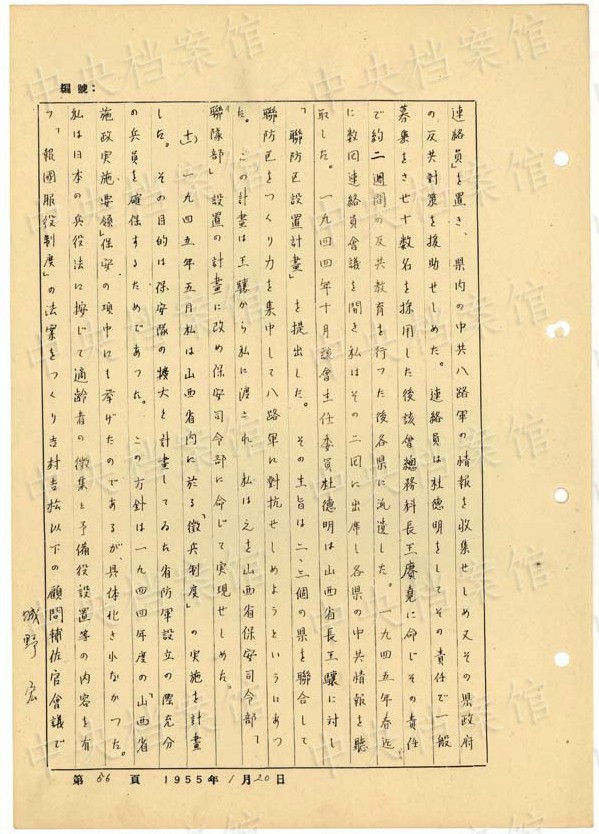 編號：
連絡員」を置き、県内の中共八路軍の情報を収集せしめ又その県政府
の反共対策を援助せしめた。連絡員は杜徳明をしてその責任で一般
募集をさせ十数名を採用した後該會総務科長王賡堯に命じその責任
で約二週間の反共教育を行った後各県に派遣した。一九四五年春迄
に数回連絡員會議を開き私はその二回に出席し各県の中共情報を聴
取した。一九四四年十月該會主任委員杜德明は山西省長王驤に対し
「聯防区設置計畫」を提出した。その主旨は二、三個の県を聯合して
聯防区をつくり力を集中して八路軍に対抗せしめようというにあつ
た。この計畫は王驤から私に渡され、私は之を山西省保安司令部「
聯隊部」設置の計畫に改め保安司令部に命じて実現せしめた。
(十一) 一九四五年五月私は山西省内に於る「徴兵制度」の実施を計畫
した。その目的は保安隊の擴大と計畫してゐた省防軍設立の際充分
の兵員を確保するためであつた。この方針は一九四四年度の「山西省
施政実施要領」保安の項中にも挙げたのであるが、具体化されなかつた。
私は日本の兵役法に按じて適齢者の徴集と予備役設置等の内容を有
つ「報國服役制度」の法案をつくり吉村吾松以下の顧問補佐官會議で
城野 宏
第 86 頁 1955年 1月20日
中央档案馆